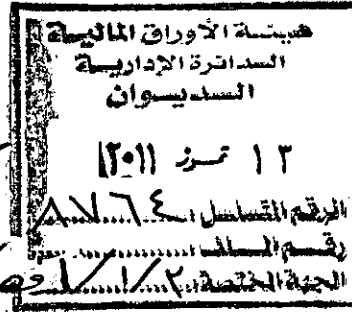 هيئة الأوراق المالية
الدائرة الإدارية
الديوان
١٣ تموز ٢٠١١
الرقم المتسلسل: ٨٧٦٤
رقم الملف:
الجهة المختصة: